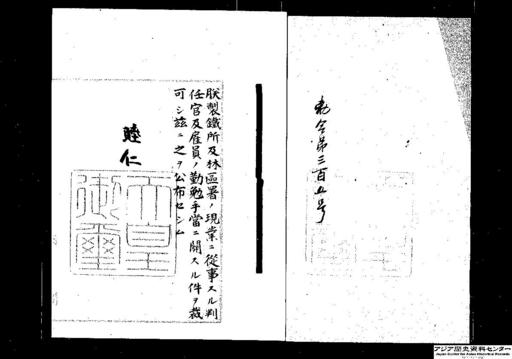 勅令第三百五号
朕製鐵所及林區署ノ現業ニ從事スル判
任官及雇員ノ勤勉手當ニ關スル件ヲ裁
可シ茲ニ之ヲ公布セシム
睦仁
天皇
御璽
アジア歴史資料センター
Japan Center for Asian Historical Records